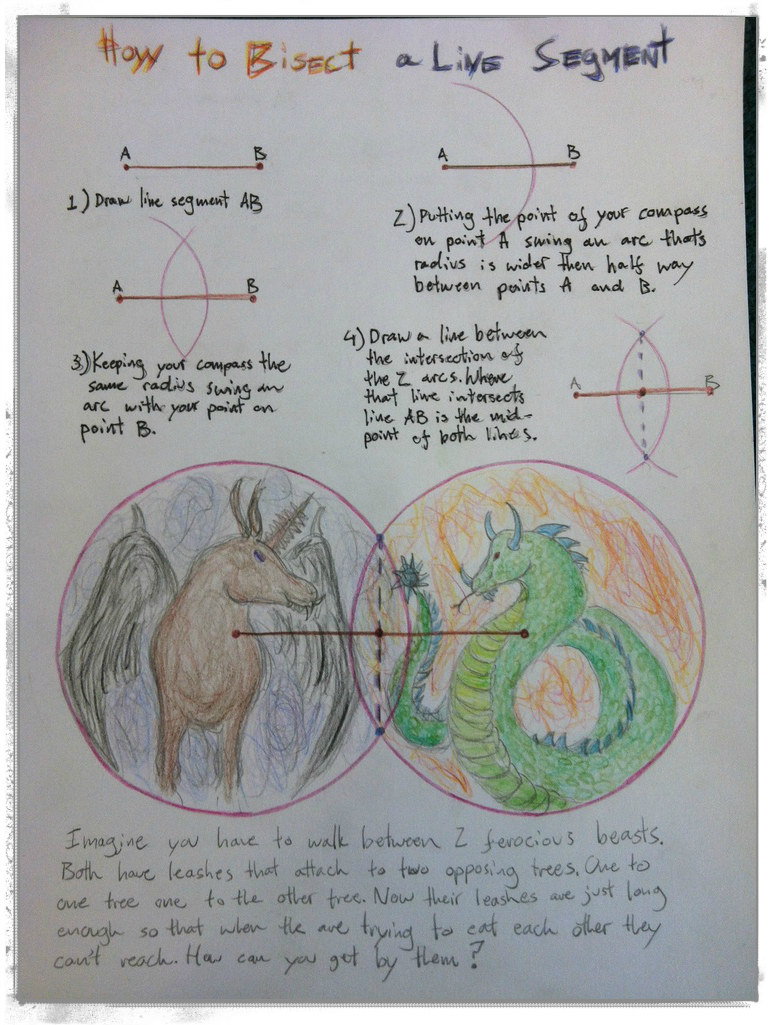 How to Bisect a Line Segment
A B
1) Draw line segment AB
A B
2) Putting the point of your compass
on point A swing an arc that's
radius is wider then half way
between points A and B.
A B
3) Keeping your compass the
same radius swing an
arc with your point on
point B.
4) Draw a line between
the intersection of
the 2 arcs. Where
that line intersects
line AB is the mid-
point of both lines.
A B
Imagine you have to walk between 2 ferocious beasts.
Both have leashes that attach to two opposing trees. One to
one tree one to the other tree. Now their leashes are just long
enough so that when the are trying to eat each other they
can't reach. How can you get by them?